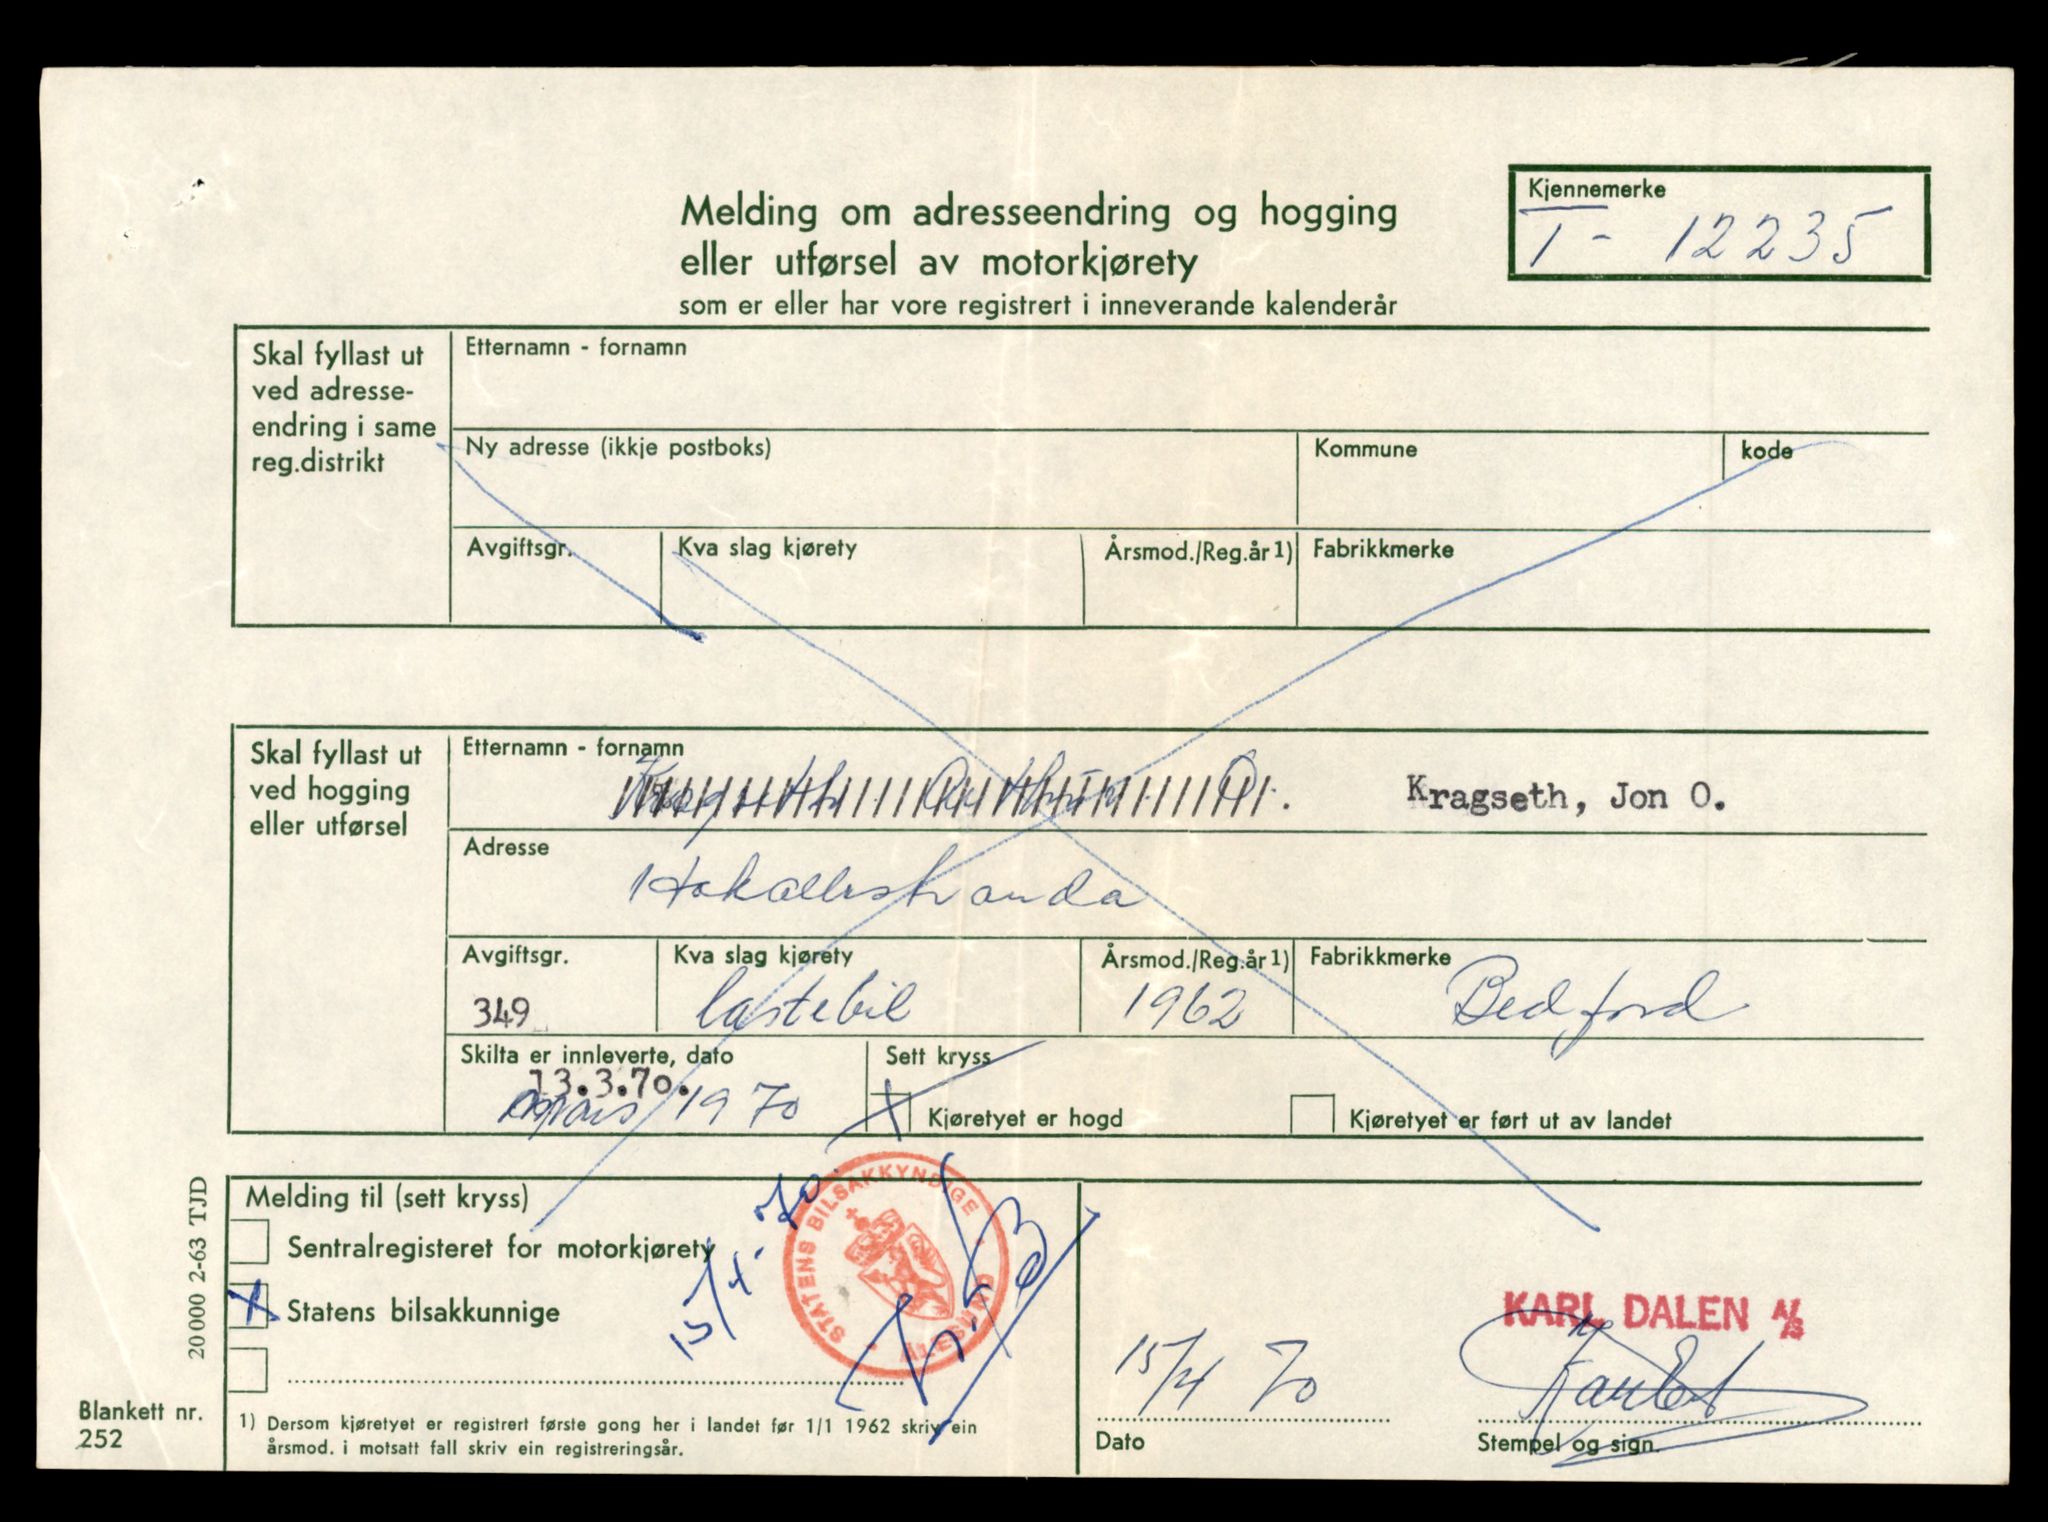 Melding om adresseendring og hogging
eller utførsel av motorkjørety
som er eller har vore registrert i inneverande kalenderår
Kjennemerke
T - 12235
Skal fyllast ut
ved adresse-
endring i same
reg.distrikt
Etternamn - fornamn
Ny adresse (ikkje postboks)
Kommune
kode
Avgiftsgr.
Kva slag kjørety
Årsmod./Reg.år 1)
Fabrikkmerke
Skal fyllast ut
ved hogging
eller utførsel
Etternamn - fornamn
Kragseth, Jon O.
Adresse
Hakallestranda
Avgiftsgr.
349
Kva slag kjørety
lastebil
Årsmod./Reg.år 1)
1962
Fabrikkmerke
Bedford
Skilta er innleverte, dato
13.3.70.
mars 1970
Sett kryss
X Kjøretyet er hogd
Kjøretyet er ført ut av landet
Melding til (sett kryss)
Sentralregisteret for motorkjørety
X Statens bilsakkunnige
15/4-70
STATENS BILSAKKYNDIGE
ÅLESUND
15/4 70
Dato
KARL DALEN A/S
Stempel og sign.
1) Dersom kjøretyet er registrert første gong her i landet før 1/1 1962 skriv ein
årsmod. i motsatt fall skriv ein registreringsår.
20 000 2-63 TJD
Blankett nr.
252